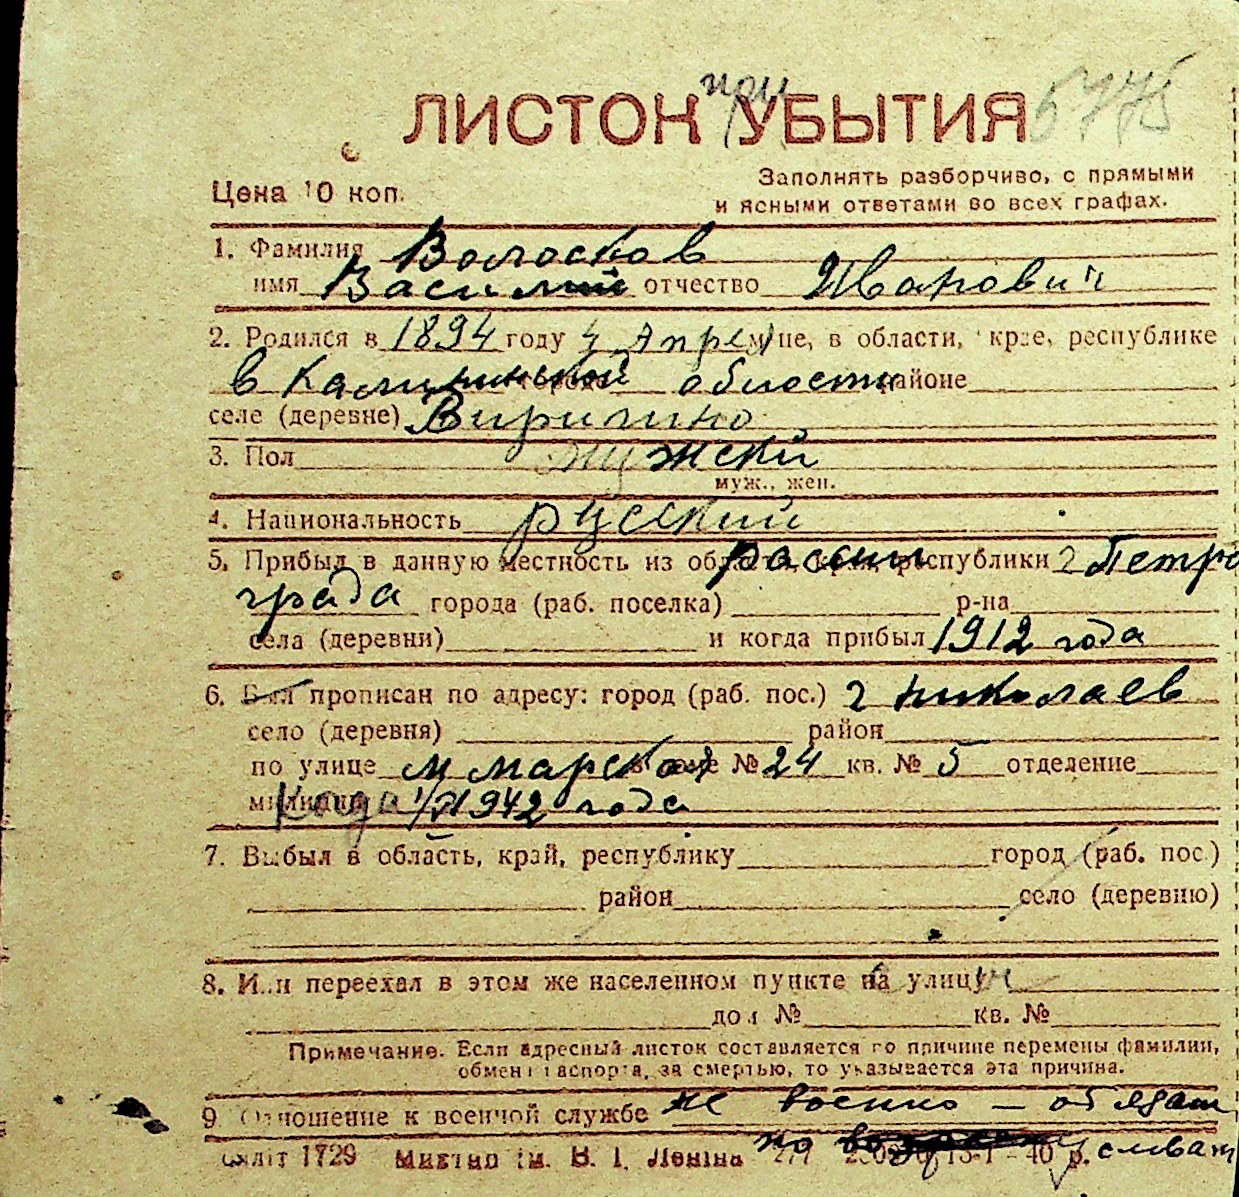 при 5775
ЛИСТОК УБЫТИЯ
Цена 10 коп. Заполнять разборчиво, с прямыми
и ясными ответами во всех графах.
1. Фамилия Волосков
имя Василий отчество Иванович
2. Родился в 1894 году 4 Апрел м-це, в области, крае, республике
в Калининской области районе
селе (деревне) Виричино
3. Пол мужски
муж., жен.
4. Национальность русский
5. Прибыл в данную местность из области, края, республики России г Петро
града города (раб. поселка) р-на
села (деревни) и когда прибыл 1912 года
6. Был прописан по адресу: город (раб. пос.) г Николаев
село (деревня) район
по улице м морской в доме № 24 кв. № 5 отделение
милиции Когда 1942 года
7. Выбыл в область, край, республику город (раб. пос.)
район село (деревню)
8. Или переехал в этом же населенном пункте на улицу
дом № кв. №
Примечание. Если адресный листок составляется по причине перемены фамилии,
обмена паспорта, за смертью, то указывается эта причина.
9 Отношение к военной службе не военно - обязан
по возрасту
Облліт 1729 Миктип ім. В. І. Леніна